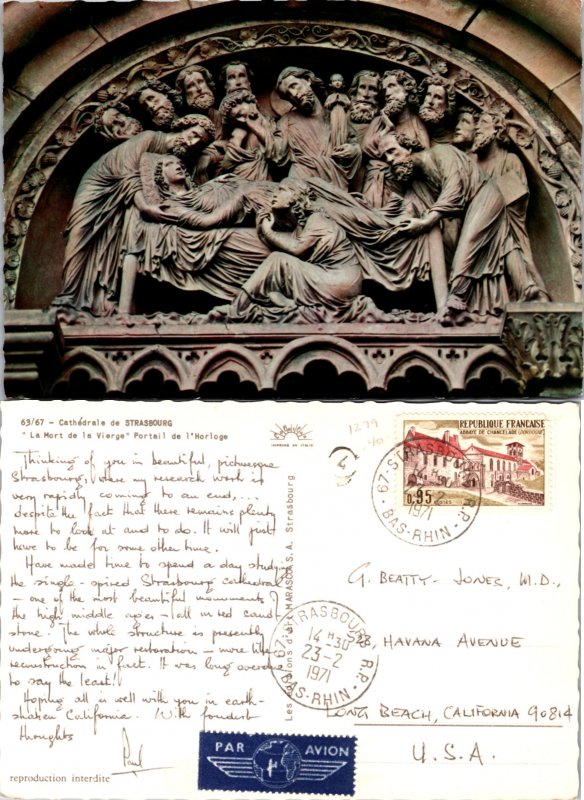 63/67 - Cathédrale de STRASBOURG
"La Mort de la Vierge" Portail de l'Horloge
IMPRIMÉ EN ITALIE
1279
40
4
REPUBLIQUE FRANÇAISE
ABBAYE DE CHANCELADE (DORDOGNE)
0,95 POSTES
67-STRASBOURG R.P.
2
1971
BAS-RHIN
Thinking of you in beautiful, picturesque
Strasbourg, where my research work is
very rapidly coming to an end,...
despite the fact that there remains plenty
more to look at and to do. It will just
have to be for some other time.
Have made time to spend a day studying
the single-spired Strasbourg cathedral
- one of the most beautiful monuments of
the high middle ages - all in red sand-
stone. The whole structure is presently
undergoing major restoration - more like
reconstruction in fact. It was long overdue
to say the least!
Hoping all is well with you in earth-
shaken California. With fondest
thoughts
Paul
Les Editions d'Art MARASCO S.A. Strasbourg
67-STRASBOURG R.P.
14 H 30
23-2
1971
BAS-RHIN
G. BEATTY-JONES, M.D.,
528, HAVANA AVENUE
LONG BEACH, CALIFORNIA 90814
U.S.A.
PAR AVION
reproduction interdite